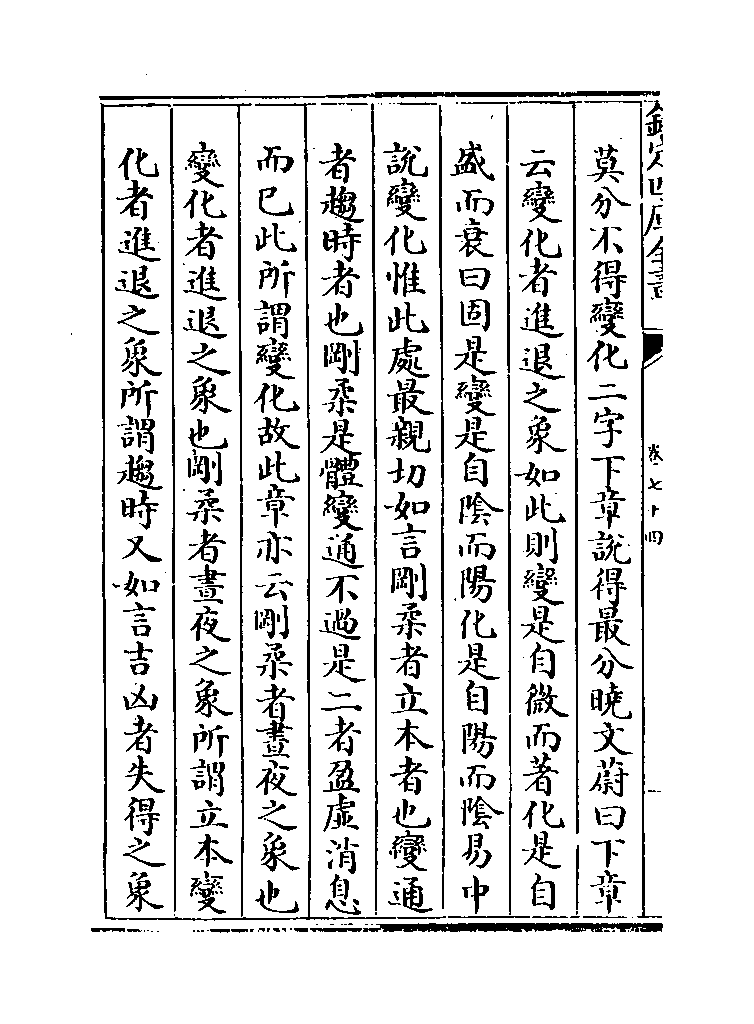 欽定四庫全書
卷七十四
莫分不得變化二字下章說得最分曉文蔚曰下章
云變化者進退之象如此則變是自微而著化是自
盛而衰曰固是變是自陰而陽化是自陽而陰易中
說變化惟此處最親切如言剛柔者立本者也變通
者趨時者也剛柔是體變通不過是二者盈虛消息
而已此所謂變化故此章亦云剛柔者晝夜之象也
變化者進退之象也剛柔者晝夜之象所謂立本變
化者進退之象所謂趨時又如言吉凶者失得之象